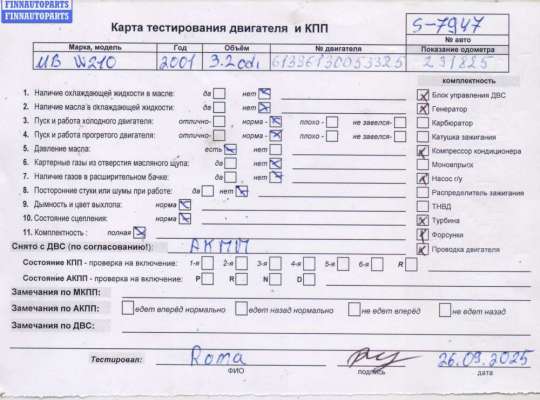 FINNAUTOPARTS
FINNAUTOPARTS
Карта тестирования двигателя и КПП
S-7947
№ авто
Марка, модель Год Объём № двигателя Показание одометра
MB W210 2001 3.2 cdi 61396130053325 291825
комплектность
1. Наличие охлаждающей жидкости в масле: да нет
Блок управления ДВС
2. Наличие масла в охлаждающей жидкости: да нет
Генератор
3. Пуск и работа холодного двигателя: отлично- норма - плохо - не завелся-
Карбюратор
4. Пуск и работа прогретого двигателя: отлично- норма - плохо - не завелся-
Катушка зажигания
5. Давление масла: есть нет
Компрессор кондиционера
6. Картерные газы из отверстия масляного щупа: да нет
Моновпрыск
7. Наличие газов в расширительном бачке: да нет
Насос г/у
8. Посторонние стуки или шумы при работе: да нет
Распределитель зажигания
9. Дымность и цвет выхлопа: норма
ТНВД
10. Состояние сцепления: норма
Турбина
11. Комплектность : полная
Форсунки
Снято с ДВС (по согласованию!): АКПП
Проводка двигателя
Состояние КПП - проверка на включение: 1-я 2-я 3-я 4-я 5-я 6-я R
Состояние АКПП - проверка на включение: P R N D
Замечания по МКПП:
Замечания по АКПП: едет вперёд нормально едет назад нормально не едет вперёд не едет назад
Замечания по ДВС:
Тестировал: Roma 26.09.2025
ФИО подпись дата